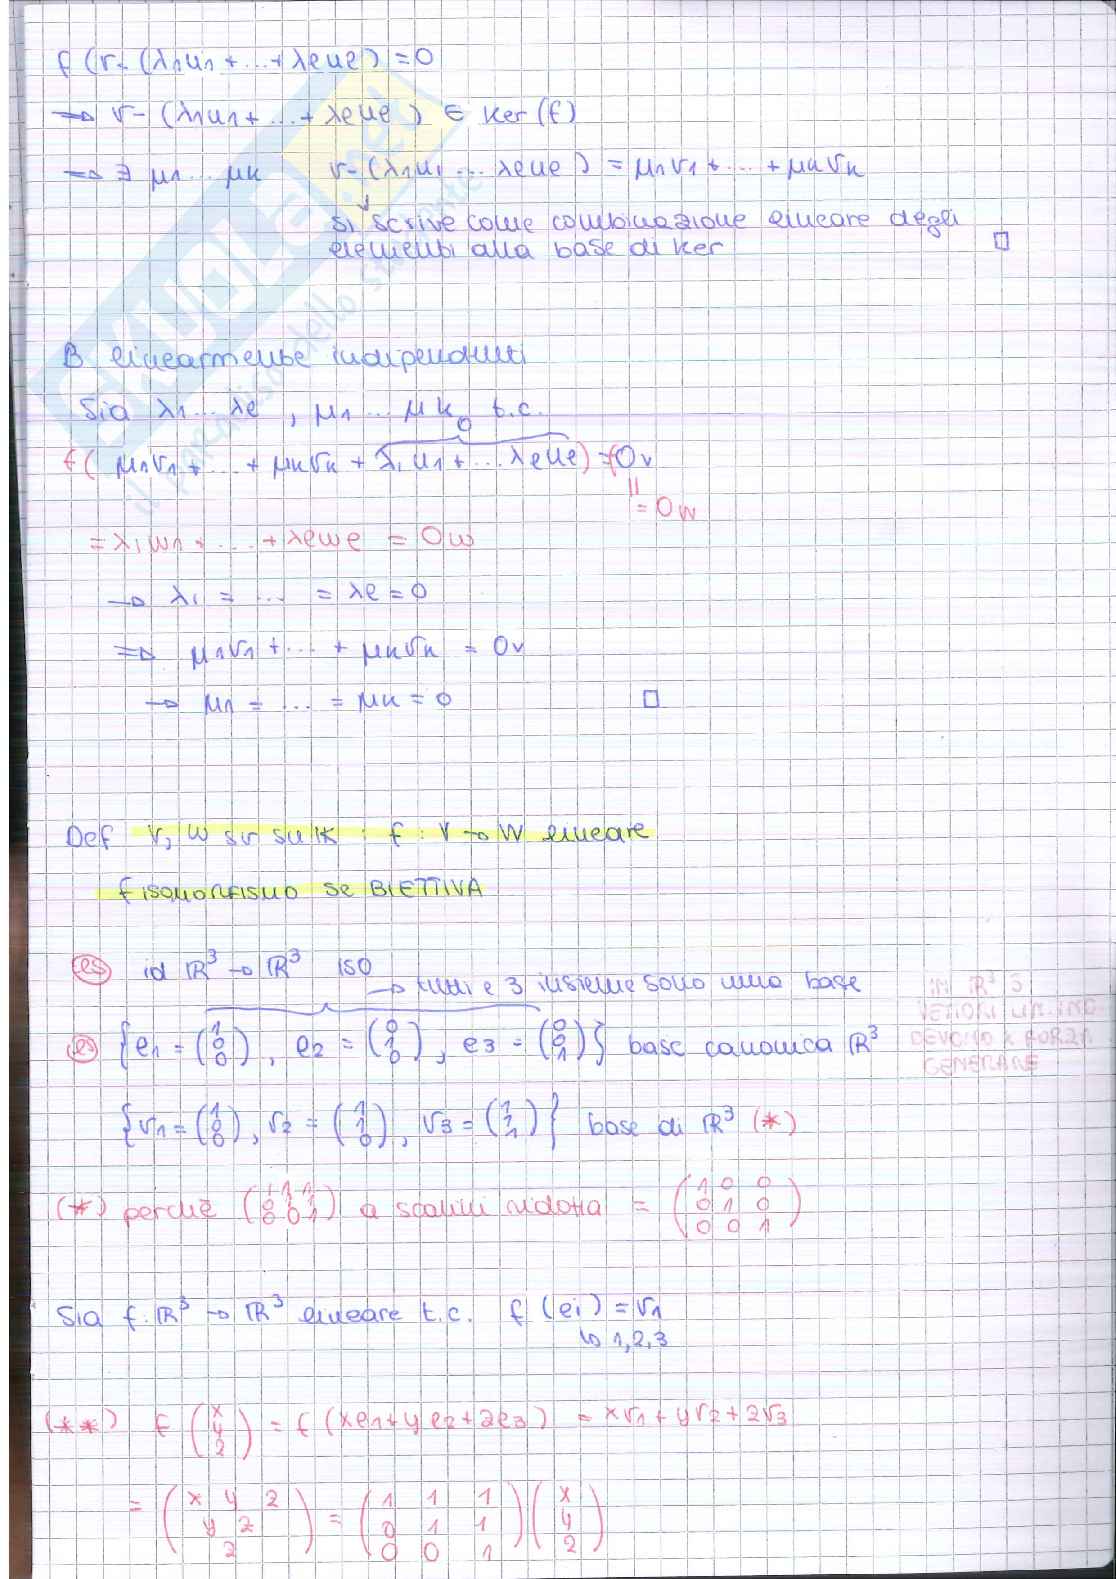 f (v - (λ1u1 + ... + λeue) = 0
⇒ v - (λ1u1 + ... + λeue) ∈ Ker (f)
⇒ ∃ μ1 ... μk v - (λ1u1 ... λeue) = μ1v1 + ... + μkvk
si scrive come combinazione lineare degli
elementi alla base di Ker □
B linearmente indipendenti
Sia λ1 ... λe , μ1 ... μk t.c.
0
f( μ1v1 + ... + μkvk + λ1u1 + ... λeue) = f0v
= 0w
= λ1w1 + ... + λewe = 0w
→ λ1 = ... = λe = 0
⇒ μ1v1 + ... + μkvk = 0v
→ μ1 = ... = μk = 0 □
Def V, W sv su IK : f : V → W lineare
f isomorfismo se BIETTIVA
es id ℝ³ → ℝ³ iso
→ tutti e 3 insieme sono una base
IN ℝ³ 3
VETTORI LIN. IND
DEVONO X FORZA
GENERARE
es {e1 = (1 0 0), e2 = (0 1 0), e3 = (0 0 1)} base canonica ℝ³
{v1 = (1 0 0), v2 = (1 1 0), v3 = (1 1 1)} base di ℝ³ (*)
(*) perchè (1 1 1 0 1 1 0 0 1) a scalini ridotta = (1 0 0 0 1 0 0 0 1)
Sia f: ℝ³ → ℝ³ lineare t.c. f (ei) = v1
↳ 1,2,3
(**) f (x y z) = f (xe1 + ye2 + ze3) = xv1 + yv2 + zv3
= (x y z y z z) = (1 1 1 0 1 1 0 0 1) (x y z)
SKUOLA.net
il paradiso dello studente